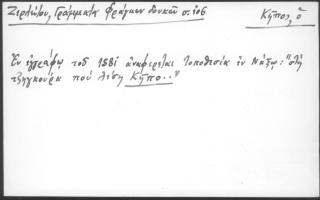 Ζερλέντου, Γράμματα Φράγκων δουκῶν σ.106
Κῆπος, ὁ
Ἐν ἐγγράφῳ τοῦ 1581 ἀναφέρεται τοποθεσία ἐν Νάξῳ: "στὴ
τζηγκούρα ποὺ λέση Κῆπο.."